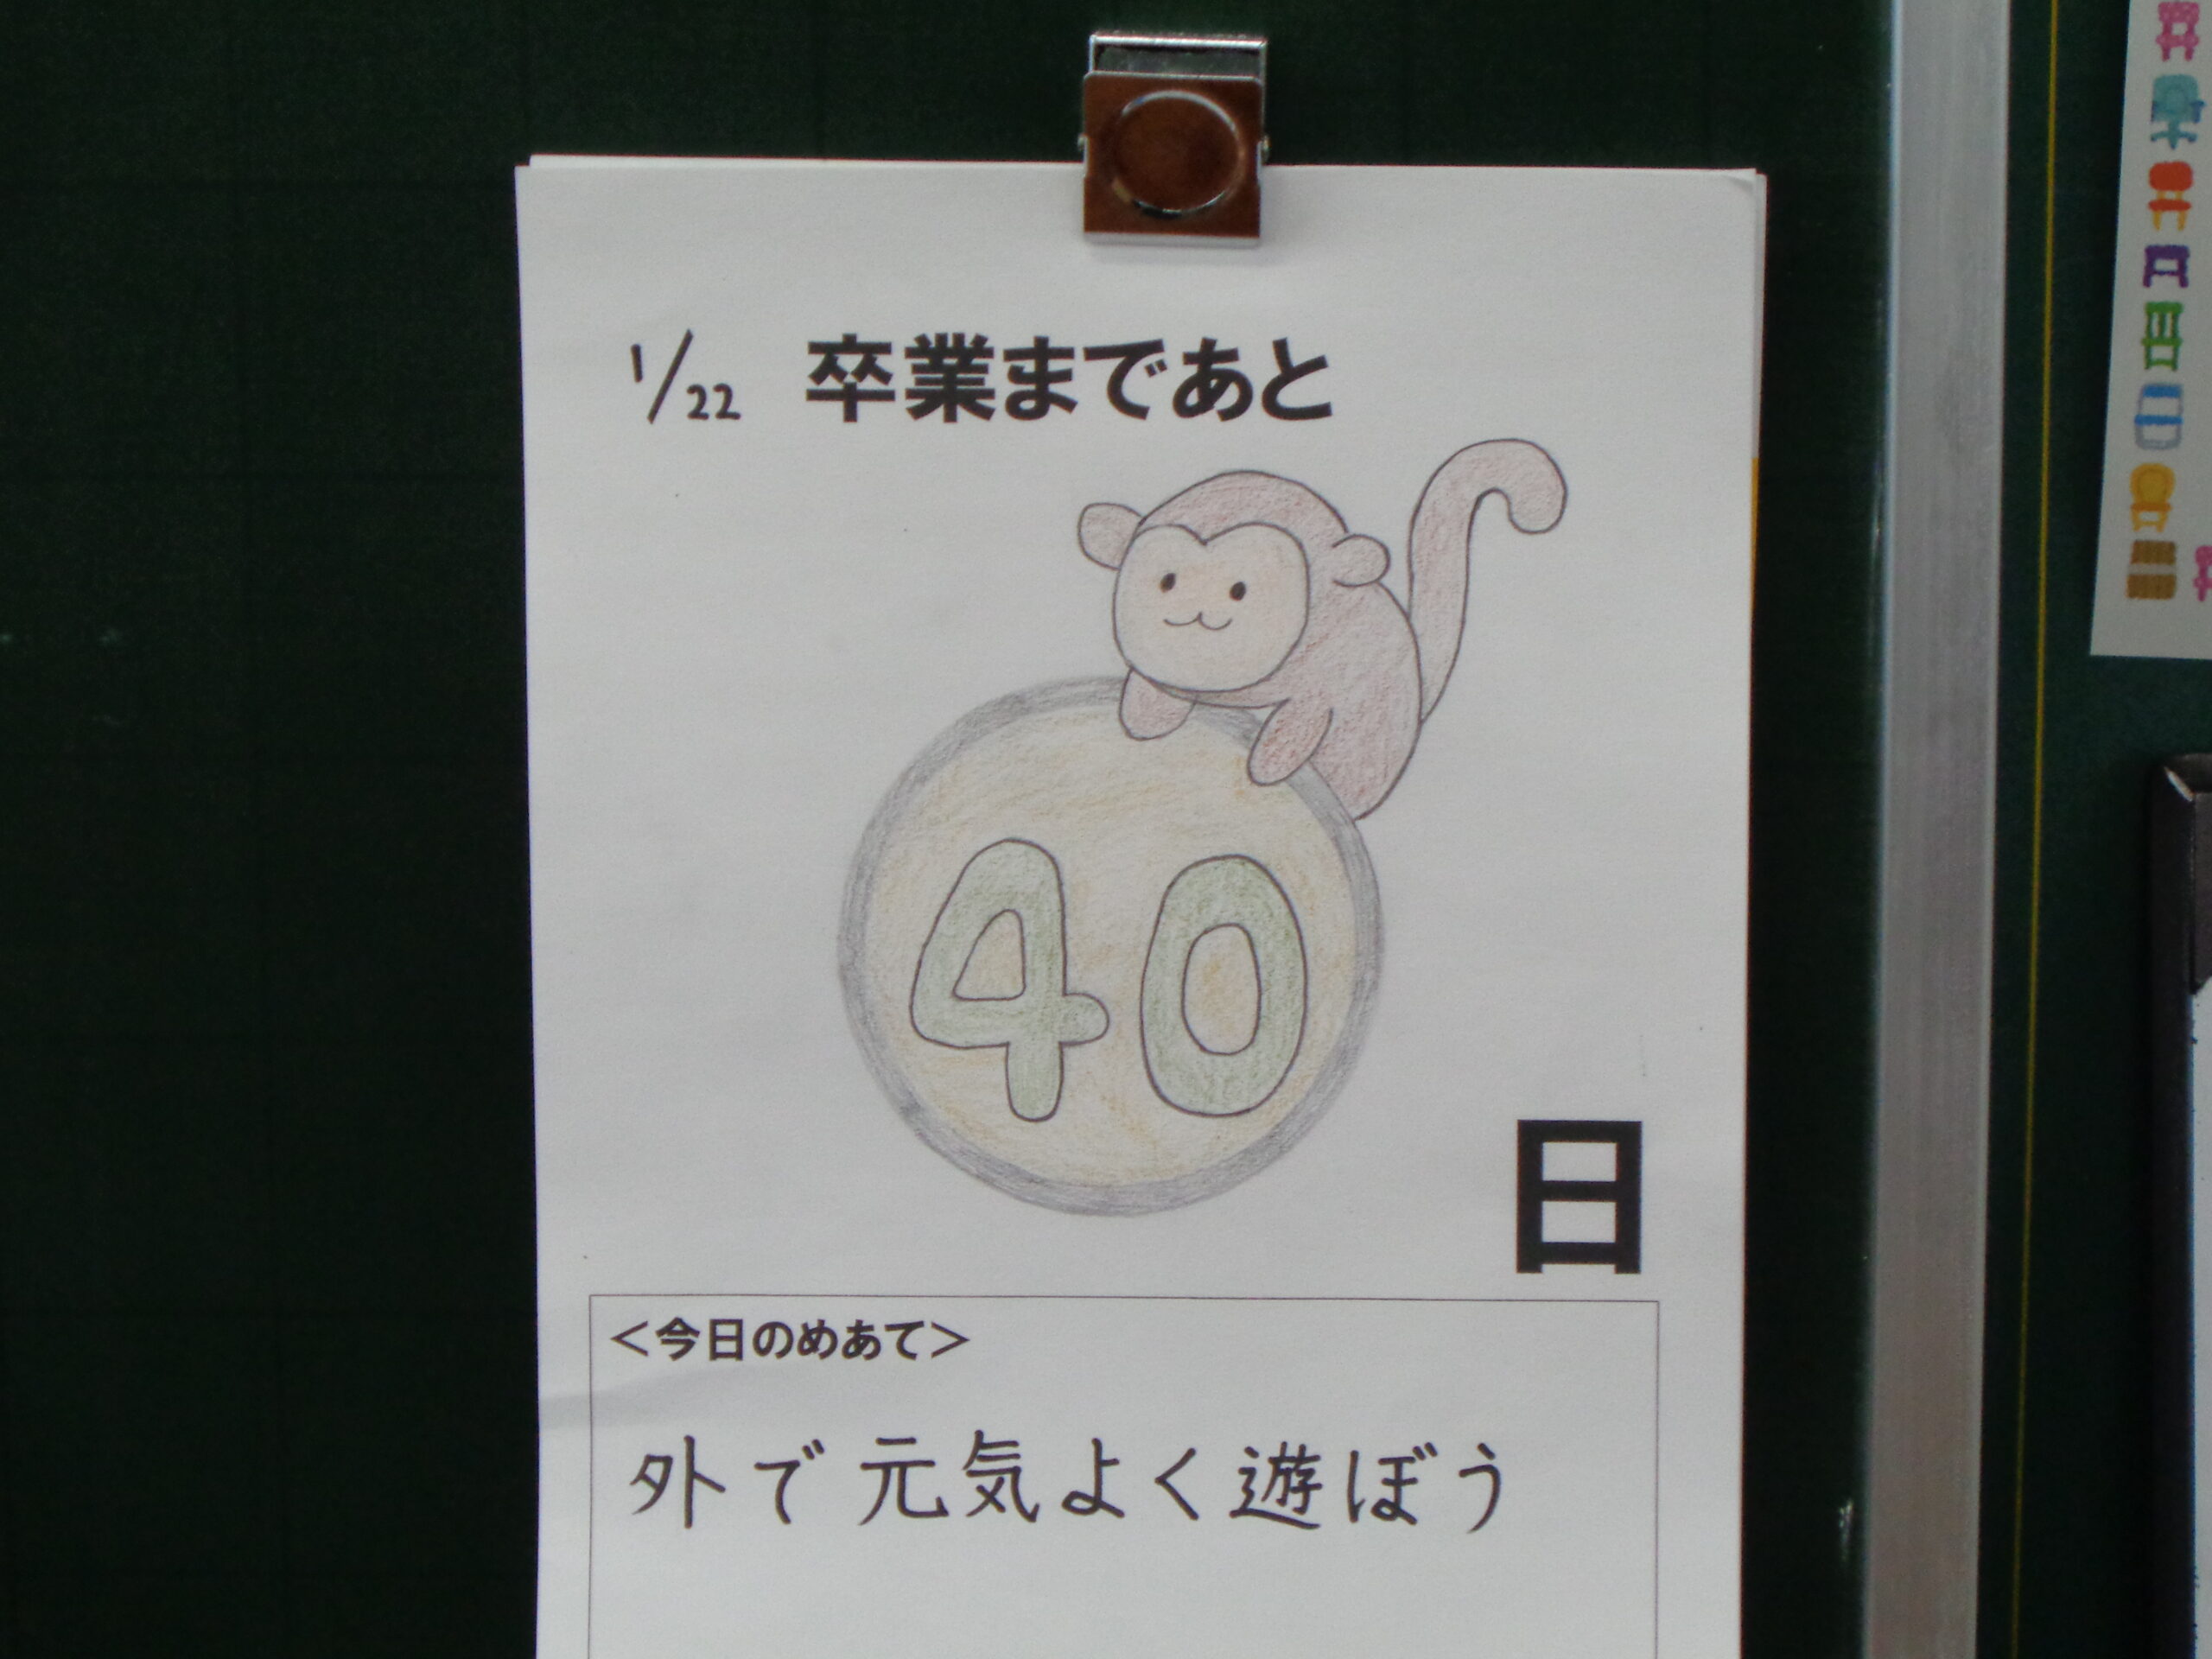 1/22 卒業まであと
40
日
＜今日のめあて＞
外で元気よく遊ぼう